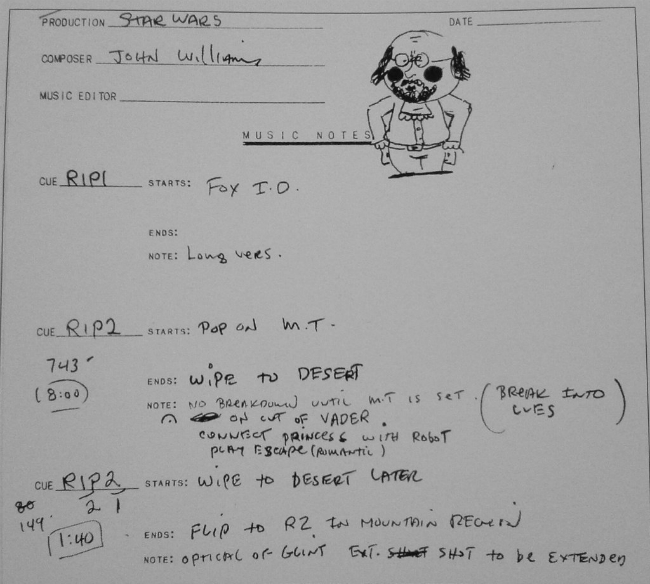 PRODUCTION STAR WARS DATE
COMPOSER JOHN Williams
MUSIC EDITOR
MUSIC NOTES
CUE R1P1 STARTS: FOX I.D.
ENDS:
NOTE: Long vers.
CUE R1P2 STARTS: POP ON M.T.
743
(8:00) ENDS: WIPE TO DESERT
NOTE: NO BREAKDOWN UNTIL M.T IS SET. (BREAK INTO CUES)
ON CUT OF VADER.
CONNECT PRINCESS WITH ROBOT
PLAY ESCAPE (ROMANTIC)
CUE R1P2 STARTS: WIPE TO DESERT LATER
2 1
149
1:40 ENDS: FLIP TO R2 IN MOUNTAIN REGION
NOTE: OPTICAL OF GLINT EXT. SHOT TO be EXTENDED